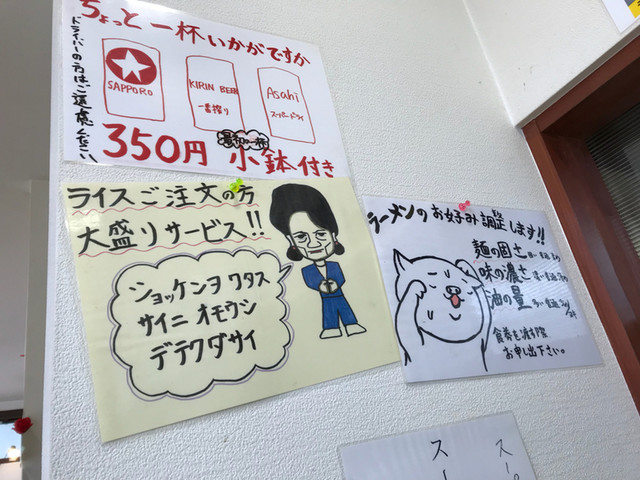 ちょっと一杯いかがですか
ドライバーの方はご遠慮ください
SAPPORO
KIRIN BEER
一番搾り
Asahi
スーパードライ
350円 小鉢付き
ライスご注文の方
大盛りサービス!!
ショッケンヲ ワタス
サイニ オモウシ
デテクダサイ
ラーメンのお好み調整します!!
麺の固さ
味の濃さ
油の量
食券を渡す際
お申し出下さい。